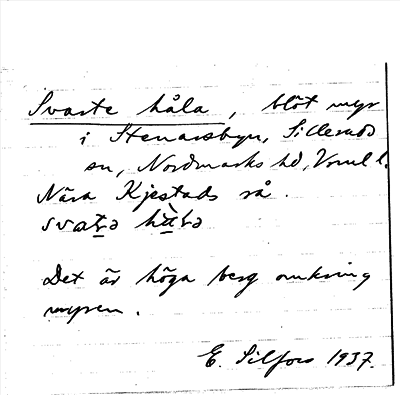 Svarte håla, blöt myr
i Stenarsbyn, Silleruds
sn, Nordmarks hd, Vrml l.
Nära Kjestads rå.
Det är höga berg omkring
myren.
E. Silfors 1937.